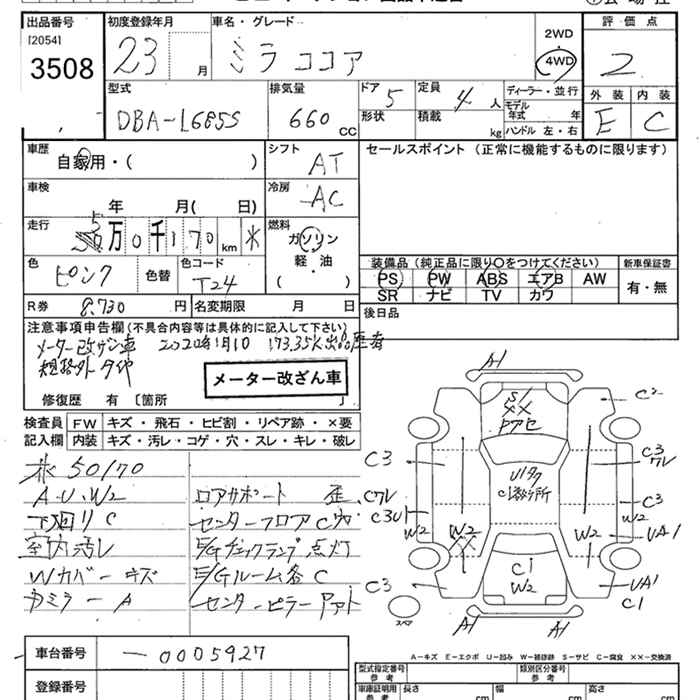 出品番号 初度登録年月 車名・グレード 2WD 4WD 評価点
[2054]
3508 23 月 ミラココア 2
型式 排気量 ドア 5 定員 4人 ディーラー・並行 外装 内装
DBA-L685S 660 CC 形状 積載 kg モデル年式 年 E C
ハンドル 左・右
車歴 シフト セールスポイント (正常に機能するものに限ります)
自家用・( ) AT
車検 冷房
年 月( 日) AC
走行 燃料
5万0千170km ガソリン
軽・油
( )
色 色替 色コード
ピンク T24
装備品(純正品に限り○をつけてください) 新車保証書
PS PW ABS エアB AW 有・無
SR ナビ TV カワ
R券 8,730 円 名変期限 月 日 後日品
注意事項申告欄(不具合内容等は具体的に記入して下さい)
メーター改ザン車 2020年1月10 173.35K出品歴有
メーター改ざん車
修復歴 有〔箇所 〕
検査員記入欄 FW キズ・飛石・ヒビ割・リペア跡・×要
内装 キズ・汚レ・コゲ・穴・スレ・キレ・破レ
50/70
A.U.W2 ロアサポート 歪
下廻りC センターフロアC穴
室内汚レ E/Gチェックランプ点灯
Wカバーキズ E/Gルーム各C
カミラーA センターピラー
A1
S1
XX
C2
C3
C3
C7レ
C3U
W2
W2
XX
U1
C1
W2
C3
W2
W2
UA1
C3
UA1
C1
スペア
A1
A1
A-キズ E-エクボ U-凹み W-補修跡 S-サビ C-腐食 ××-交換済
車台番号 -0005927
登録番号
型式指定番号 参考 類別区分番号 参考
車庫証明用 参考 長さ cm 幅 cm 高さ cm